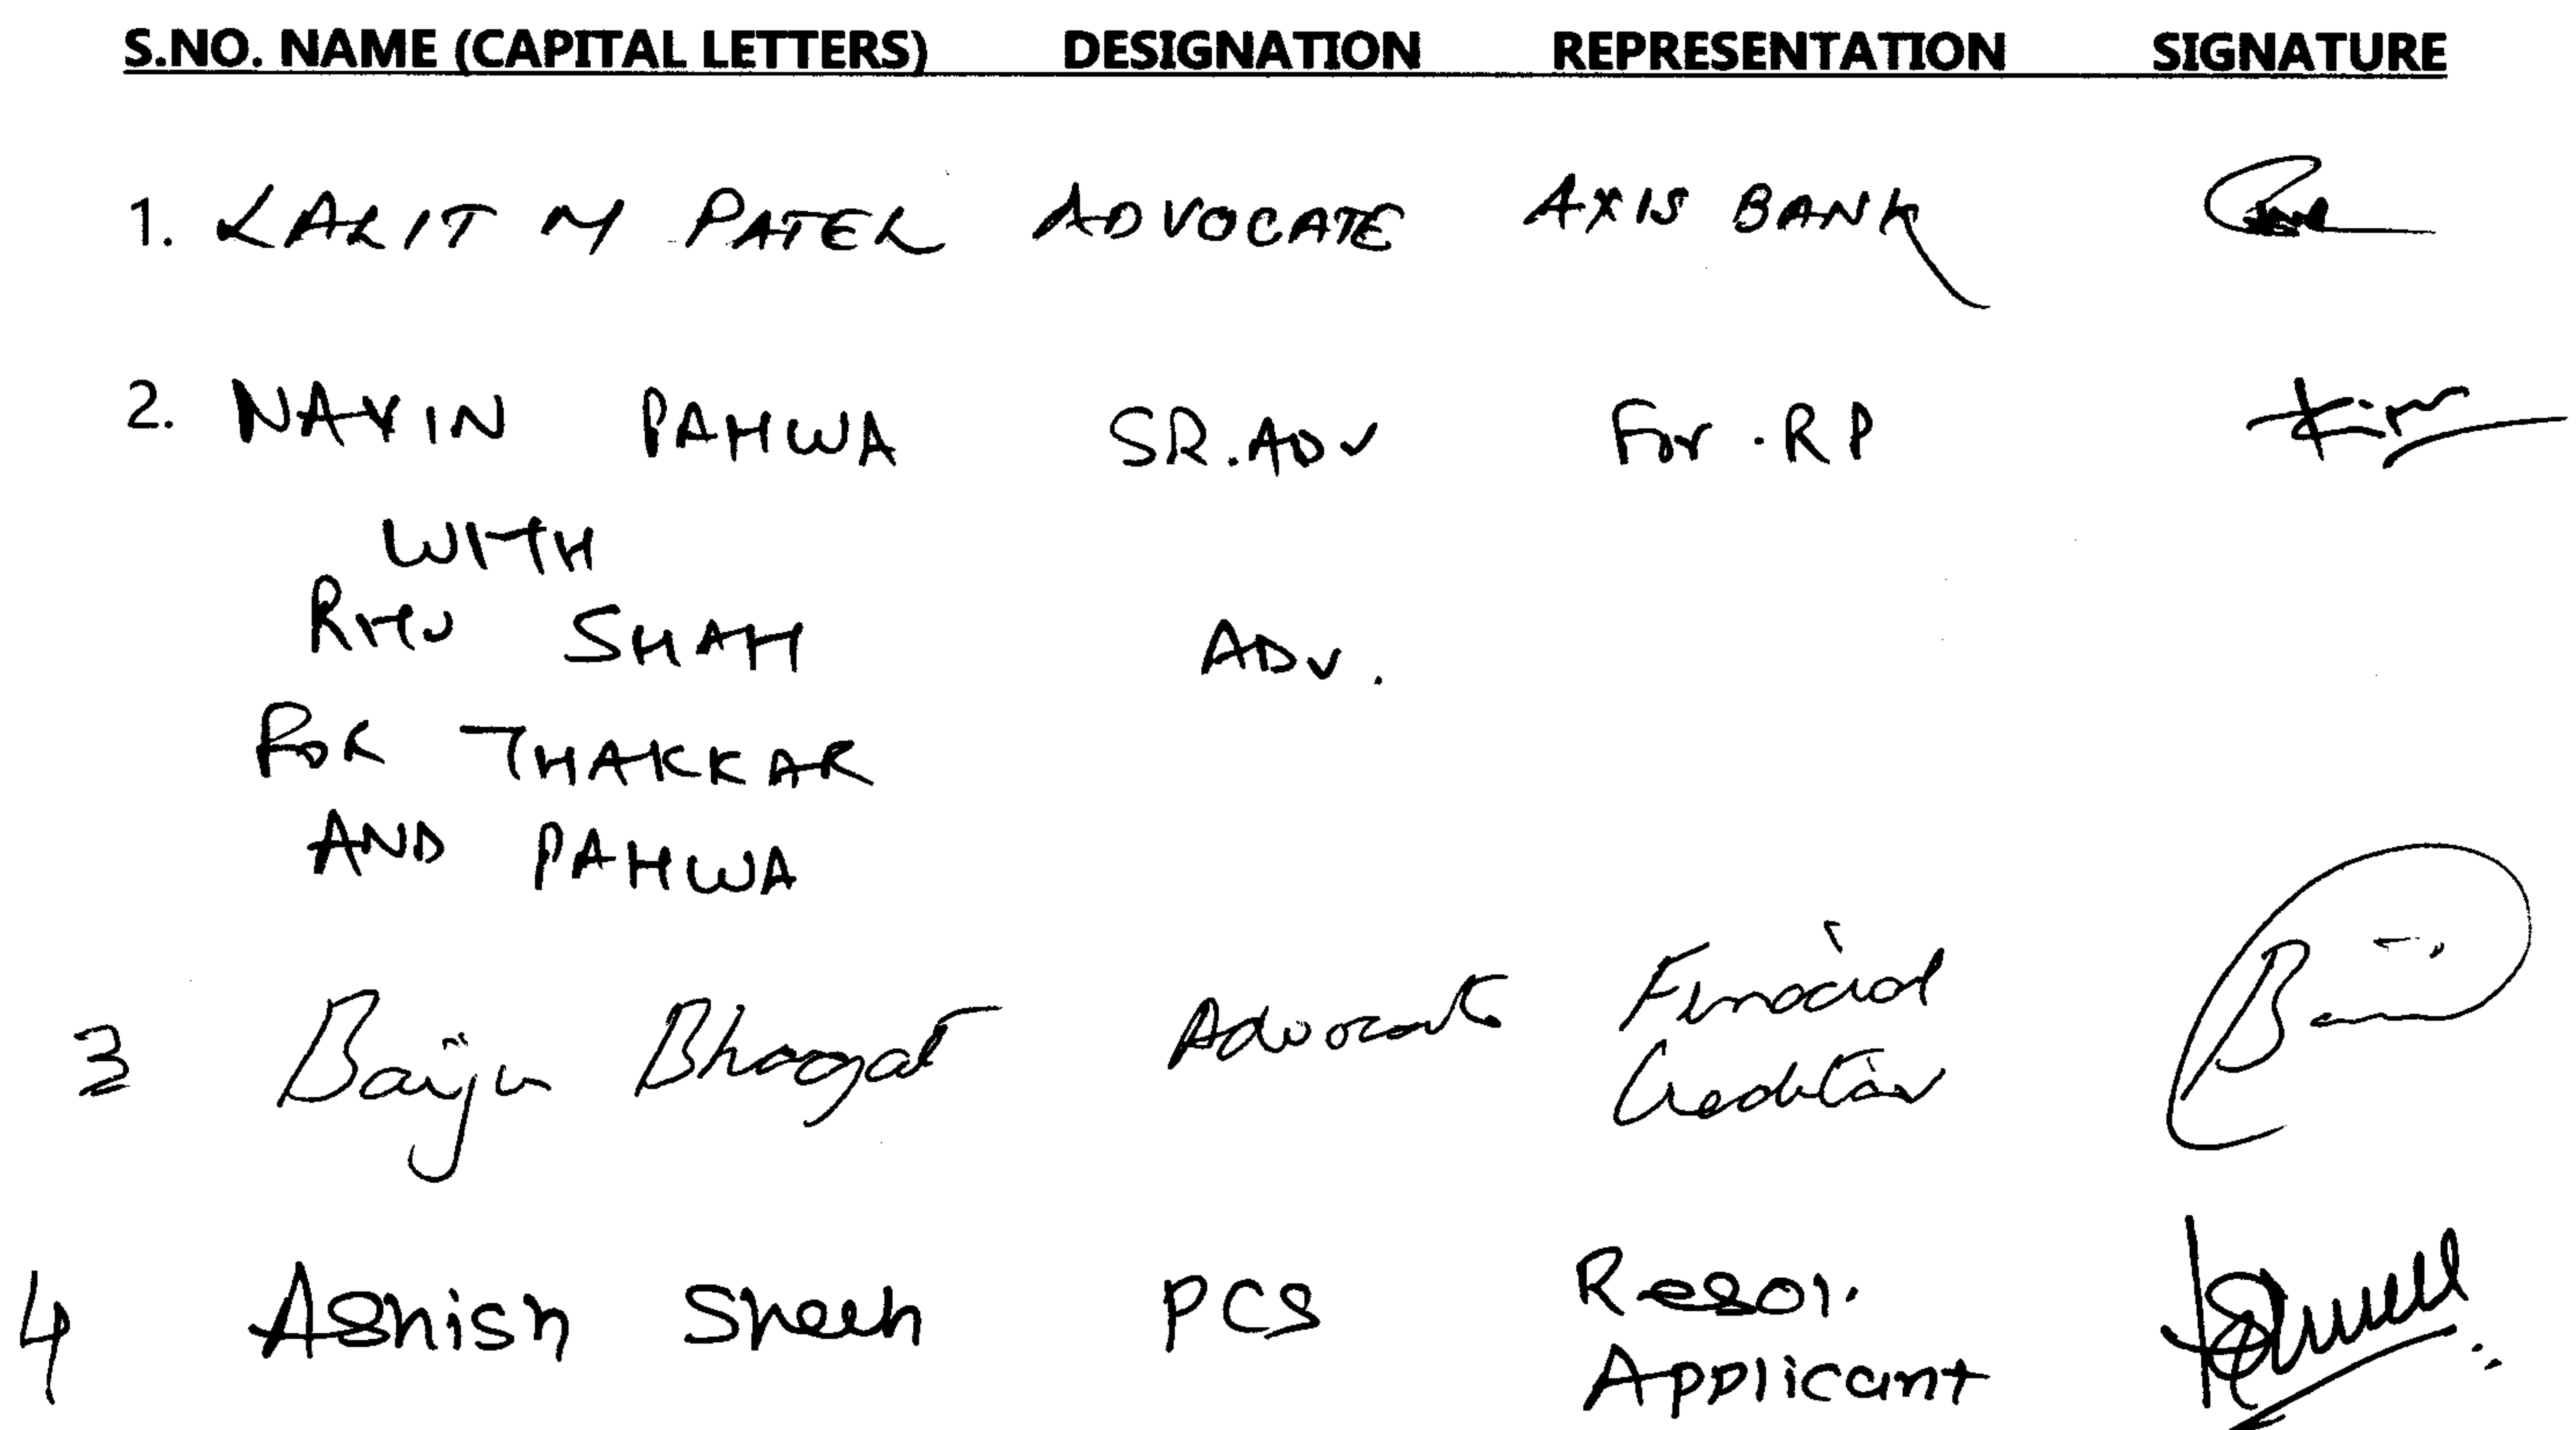 S.NO. NAME (CAPITAL LETTERS) DESIGNATION REPRESENTATION SIGNATURE
1. LALIT M PATEL ADVOCATE AXIS BANK
2. NAVIN PAHWA SR.ADV For RP
WITH
SHAH ADV.
FOR THAKKAR
AND PAHWA
3 Baiju Bhagat Advocate Financial
Creditor
4 Ashish Shah PCS Resol.
Applicant